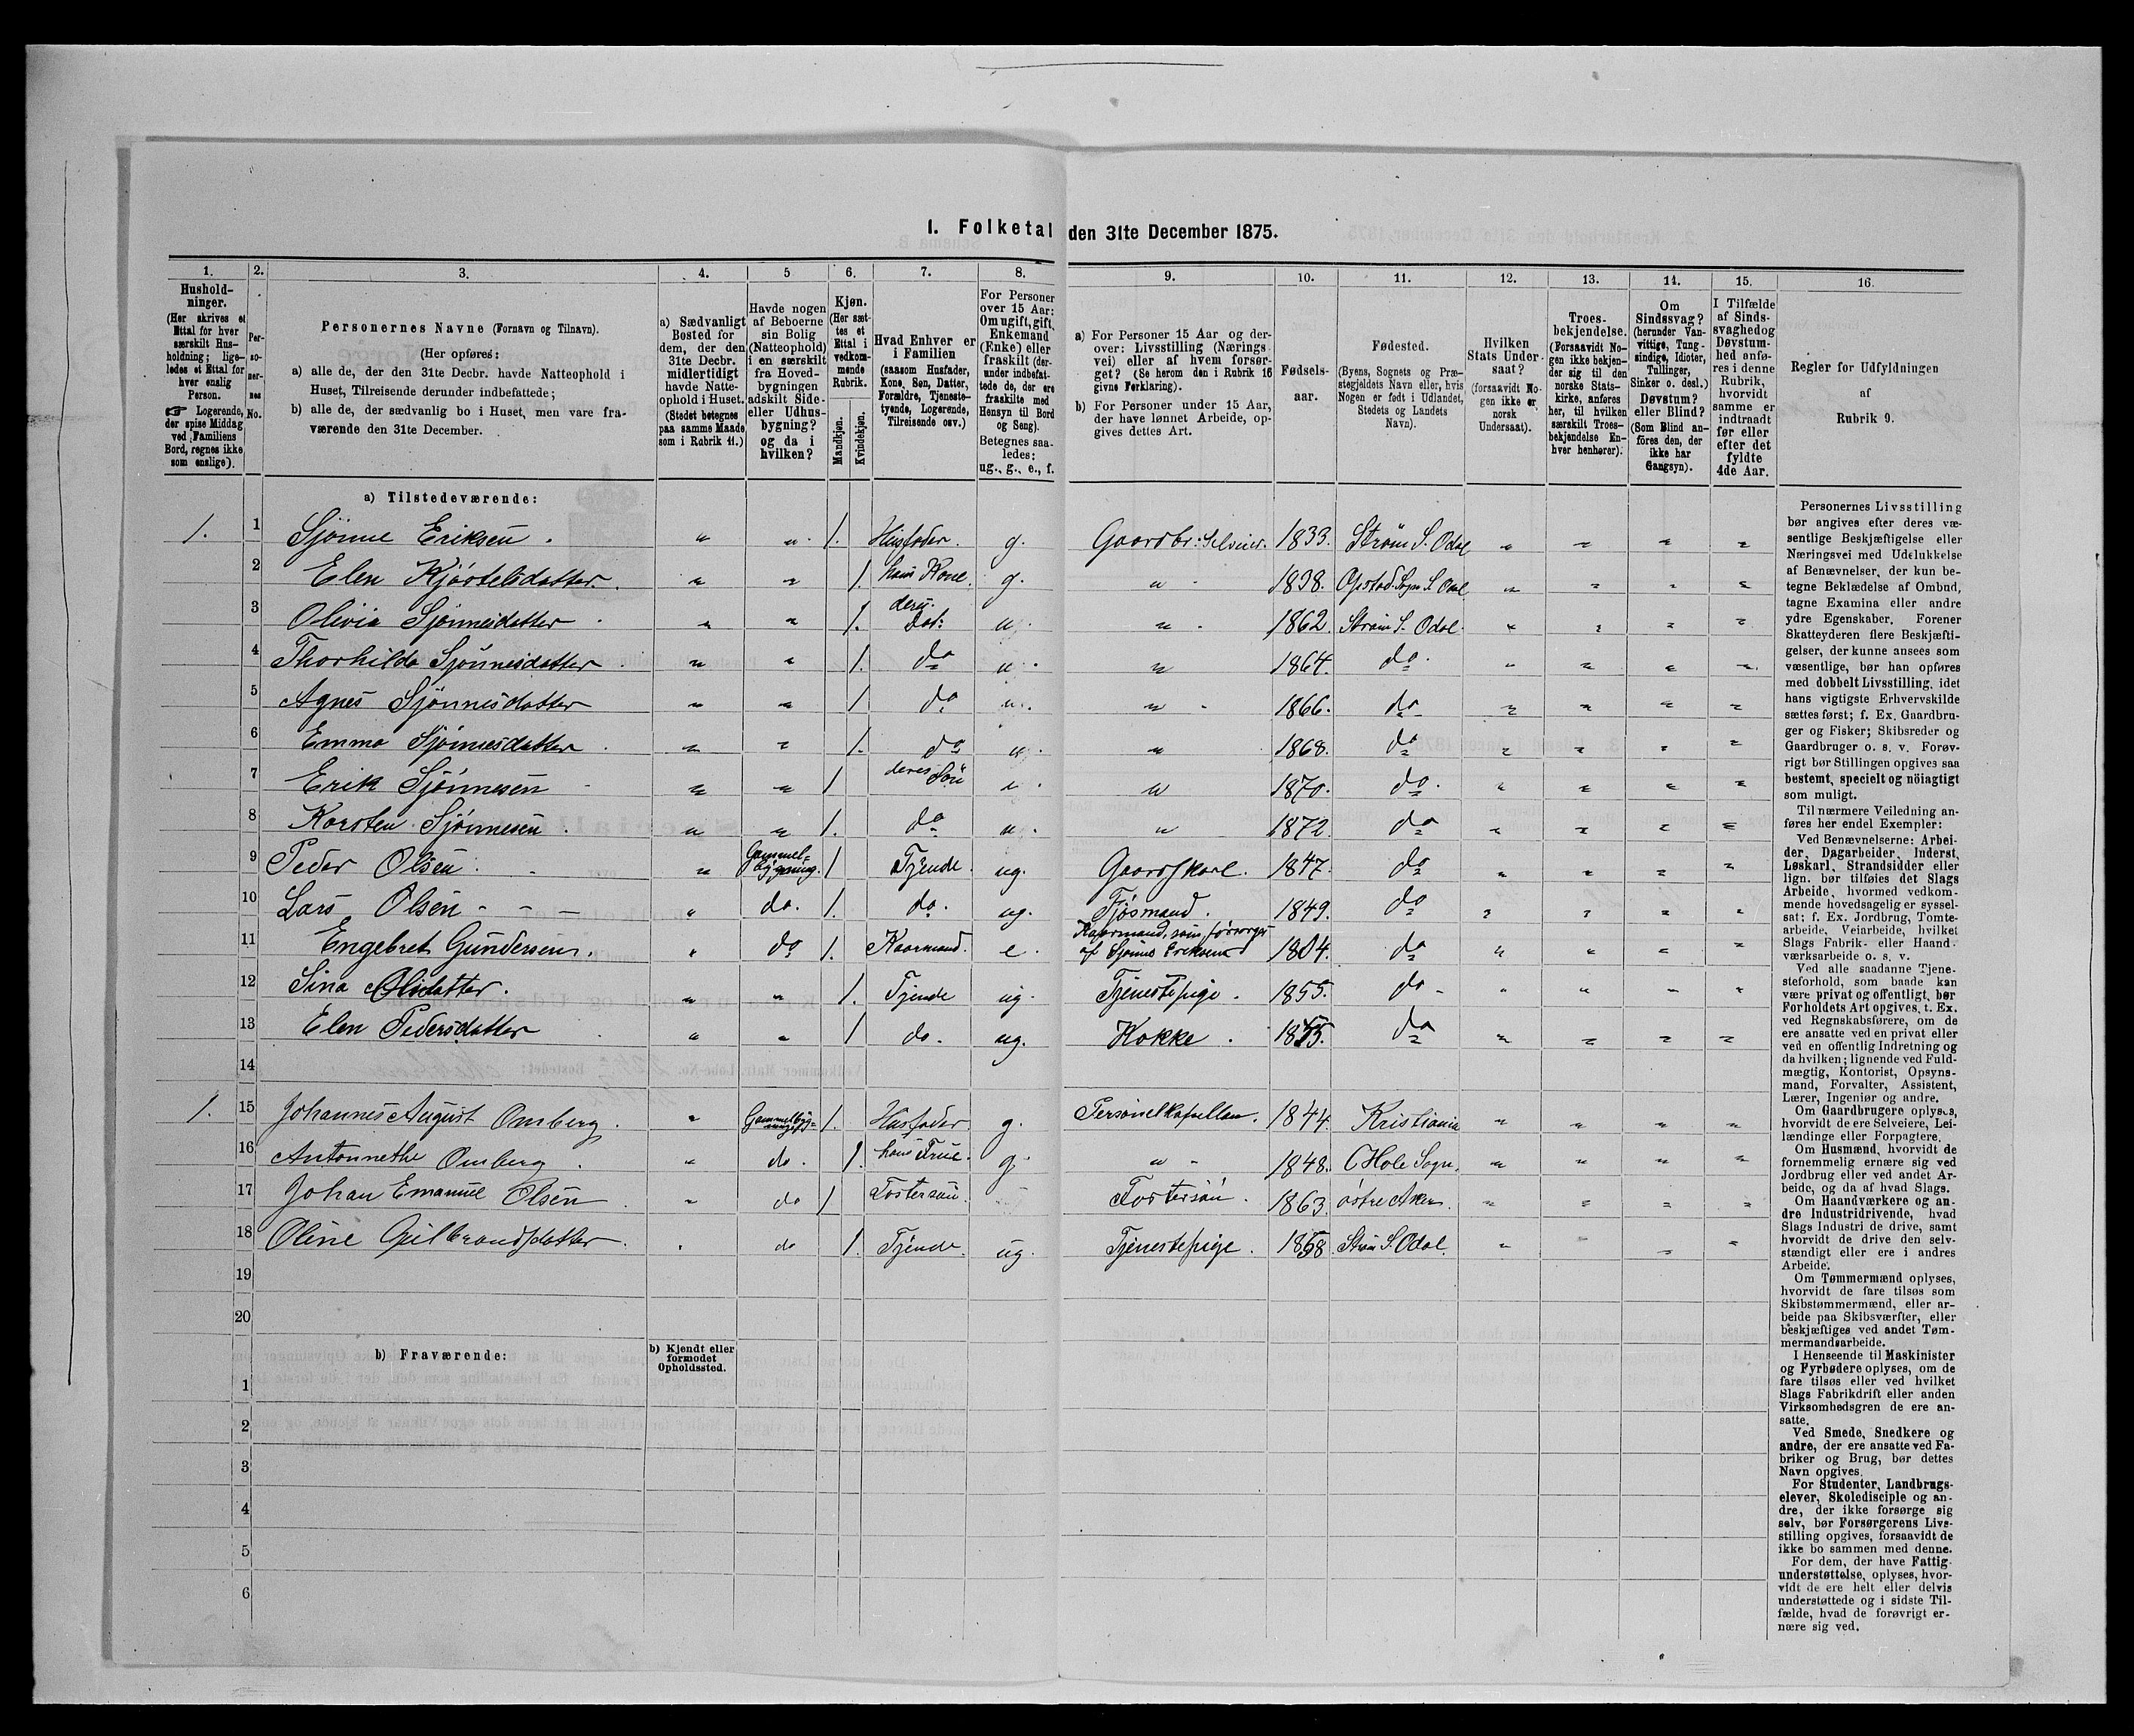 1. Folketal den 31te December 1875.
1. 2. 3. 4. 5 6. 7. 8. 9. 10. 11. 12. 13. 14. 15. 16.
Hushold-
ninger.
(Her skrives et
Ettal for hver
særskilt Hus-
holdning; lige-
ledes et Ettal for
hver enslig
Person.
☞ Logerende,
der spise Middag
ved Familiens
Bord, regnes ikke
som enslige).
Per-
so-
ner-
nes
No.
Personernes Navne (Fornavn og Tilnavn).
(Her opføres:
a) alle de, der den 31te Decbr. havde Natteophold i
Huset, Tilreisende derunder indbefattede;
b) alle de, der sædvanlig bo i Huset, men vare fra-
værende den 31te December.
a) Sædvanligt
Bosted for
dem, der den
31te Decbr.
midlertidigt
havde Natte-
ophold i Huset.
(Stedet betegnes
paa samme Maade
som i Rubrik 11.)
Havde nogen
af Beboerne
sin Bolig
(Natteophold)
i en særskilt
fra Hoved-
bygningen
adskilt Side-
eller Udhus-
bygning?
og da i
hvilken?
Kjøn.
(Her sæt-
tes et
Ettal i
vedkom-
mende
Rubrik.
Mandkjøn.
Kvindekjøn.
Hvad Enhver er
i Familien
(saasom Husfader,
Kone, Søn, Datter,
Forældre, Tjeneste-
tyende, Logerende,
Tilreisende osv.)
For Personer
over 15 Aar:
Om ugift, gift,
Enkemand
(Enke) eller
fraskilt (der-
under indbefat-
tede de, der ere
fraskilte med
Hensyn til Bord
og Seng).
Betegnes saa-
ledes:
ug., g., e., f.
a) For Personer 15 Aar og der-
over: Livsstilling (Nærings-
vei) eller af hvem forsør-
get? (Se herom den i Rubrik 16
givne Forklaring).
b) For Personer under 15 Aar,
der have lønnet Arbeide, op-
gives dettes Art.
Fødsels-
aar.
Fødested.
(Byens, Sognets og Præ-
stegjeldets Navn eller, hvis
Nogen er født i Udlandet,
Stedets og Landets
Navn).
Hvilken
Stats Under-
saat?
(forsaavidt No-
gen ikke er
norsk
Undersaat).
Troes-
bekjendelse.
(Forsaavidt No-
gen ikke bekjen-
der sig til den
norske Stats-
kirke, anføres
her, til hvilken
særskilt Troes-
bekjendelse En-
hver henhører).
Om
Sindssvag?
(herunder Van-
vittige, Tung-
sindige, Idioter,
Tullinger,
Sinker o. desl.)
Døvstum?
eller Blind?
(Som Blind an-
føres den, der
ikke har
Gangsyn).
I Tilfælde
af Sinds-
svaghedog
Døvstum-
hed anfø-
res i denne
Rubrik,
hvorvidt
samme er
indtraadt
før eller
efter det
fyldte
4de Aar.
Regler for Udfyldningen
af
Rubrik 9.
a) Tilstedeværende:
1. 1 Sjönne Eriksen. " " 1. Husfader. g. Gaardbr: Selveier. 1833. Ström S. Odal " " " "
2 Elen Kjöstelsdatter. " " 1. hans Kone. g. " 1838. Opstad Sogn S. Odal " " " "
3 Olivia Sjönnesdatter " " 1. deres Dat: u. " 1862. Ström S. Odal. " " " "
4 Thorhilda Sjönnesdatter " " 1. do u. " 1864. do. " " " "
5 Agnes Sjönnesdatter " " 1 do u. " 1866. do " " " "
6 Emma Sjönnesdatter " " 1. do u. " 1868. do " " " "
7 Erik Sjönnesen " " 1 deres Sön u. " 1870. do. " " " "
8 Karsten Sjönnesen. " " 1. do u. " 1872. do " " " "
9 Peder Olsen. " Gammel-bygning. 1 Tjende. ug. Gaardskarl. 1847. do " " " "
10 Lars Olsen " do. 1. do. ug. Fjösmand. 1849. do " " " "
11 Engebret Gundersen. " do 1. Kaarmand. e. Kaarmand, som forsörges af Sjönne Eriksen 1804. do " " " "
12 Sina Olsdatter. " " 1. Tjende ug. Tjenestepige. 1855. do " " " "
13 Elen Pedersdatter " " 1 do. ug. Kokke. 1855. do " " " "
14
1. 15 Johannes August Omberg. " Gammelbyg-ning 1. Husfader. g. Personelkapellan. 1844. Kristiania " " " "
16 Antonnethe Omberg. " do. 1. hans Frue. g. " 1848. Hole Sogn. " " " "
17 Johan Emanuel Olsen " do 1 Fostersön. Fostersön. 1863. östre Aker. " " " "
18 Oline Gulbrandsdatter. " do 1. Tjende. ug. Tjenestepige. 1858 Ström S. Odal. " " " "
19
20
b) Fraværende:
b) Kjendt eller
formodet
Opholdssted.
1
2
3
4
5
6
Personernes Livsstilling
bør angives efter deres væ-
sentlige Beskjæftigelse eller
Næringsvei med Udelukkelse
af Benævnelser, der kun be-
tegne Beklædelse af Ombud,
tagne Examina eller andre
ydre Egenskaber. Forener
Skatteyderen flere Beskjæfti-
gelser, der kunne ansees som
væsentlige, bør han opføres
med dobbelt Livsstilling, idet
hans vigtigste Erhvervskilde
sættes først; f. Ex. Gaardbru-
ger og Fisker; Skibsreder og
Gaardbruger o. s. v. Forøv-
rigt bør Stillingen opgives saa
bestemt, specielt og nöiagtigt
som muligt.
Til nærmere Veiledning an-
føres her endel Exempler:
Ved Benævnelserne: Arbei-
der, Dagarbeider, Inderst,
Løskarl, Strandsidder eller
lign. bør tilføies det Slags
Arbeide, hvormed vedkom-
mende hovedsagelig er syssel-
sat; f. Ex. Jordbrug, Tomte-
arbeide, Veiarbeide, hvilket
Slags Fabrik- eller Haand-
værksarbeide o. s. v.
Ved alle saadanne Tjene-
steforhold, som baade kan
være privat og offentligt, bør
Forholdets Art opgives, t. Ex.
ved Regnskabsførere, om de
ere ansatte ved en privat eller
ved en offentlig Indretning og
da hvilken; lignende ved Fuld-
mægtig, Kontorist, Opsyns-
mand, Forvalter, Assistent,
Lærer, Ingeniør og andre.
Om Gaardbrugere oplyses,
hvorvidt de ere Selveiere, Lei-
lændinge eller Forpagtere.
Om Husmænd, hvorvidt de
fornemmelig ernære sig ved
Jordbrug eller ved andet Ar-
beide, og da af hvad Slags.
Om Haandværkere og an-
dre Industridrivende, hvad
Slags Industri de drive, samt
hvorvidt de drive den selv-
stændigt eller ere i andres
Arbeide.
Om Tømmermænd oplyses,
hvorvidt de fare tilsøs som
Skibstømmermænd, eller ar-
beide paa Skibsværfter, eller
beskjæftiges ved andet Tøm-
mermandsarbeide.
I Henseende til Maskinister
og Fyrbødere oplyses, om de
fare tilsøs eller ved hvilket
Slags Fabrikdrift eller anden
Virksomhedsgren de ere an-
satte.
Ved Smede, Snedkere og
andre, der ere ansatte ved Fa-
briker og Brug, bør dettes
Navn opgives.
For Studenter, Landbrugs-
elever, Skoledisciple og an-
dre, der ikke forsørge sig
selv, bør Forsørgerens Livs-
stilling opgives, forsaavidt de
ikke bo sammen med denne.
For dem, der have Fattig-
understøttelse, oplyses, hvor-
vidt de ere helt eller delvis
understøttede og i sidste Til-
fælde, hvad de forøvrigt er-
nære sig ved.